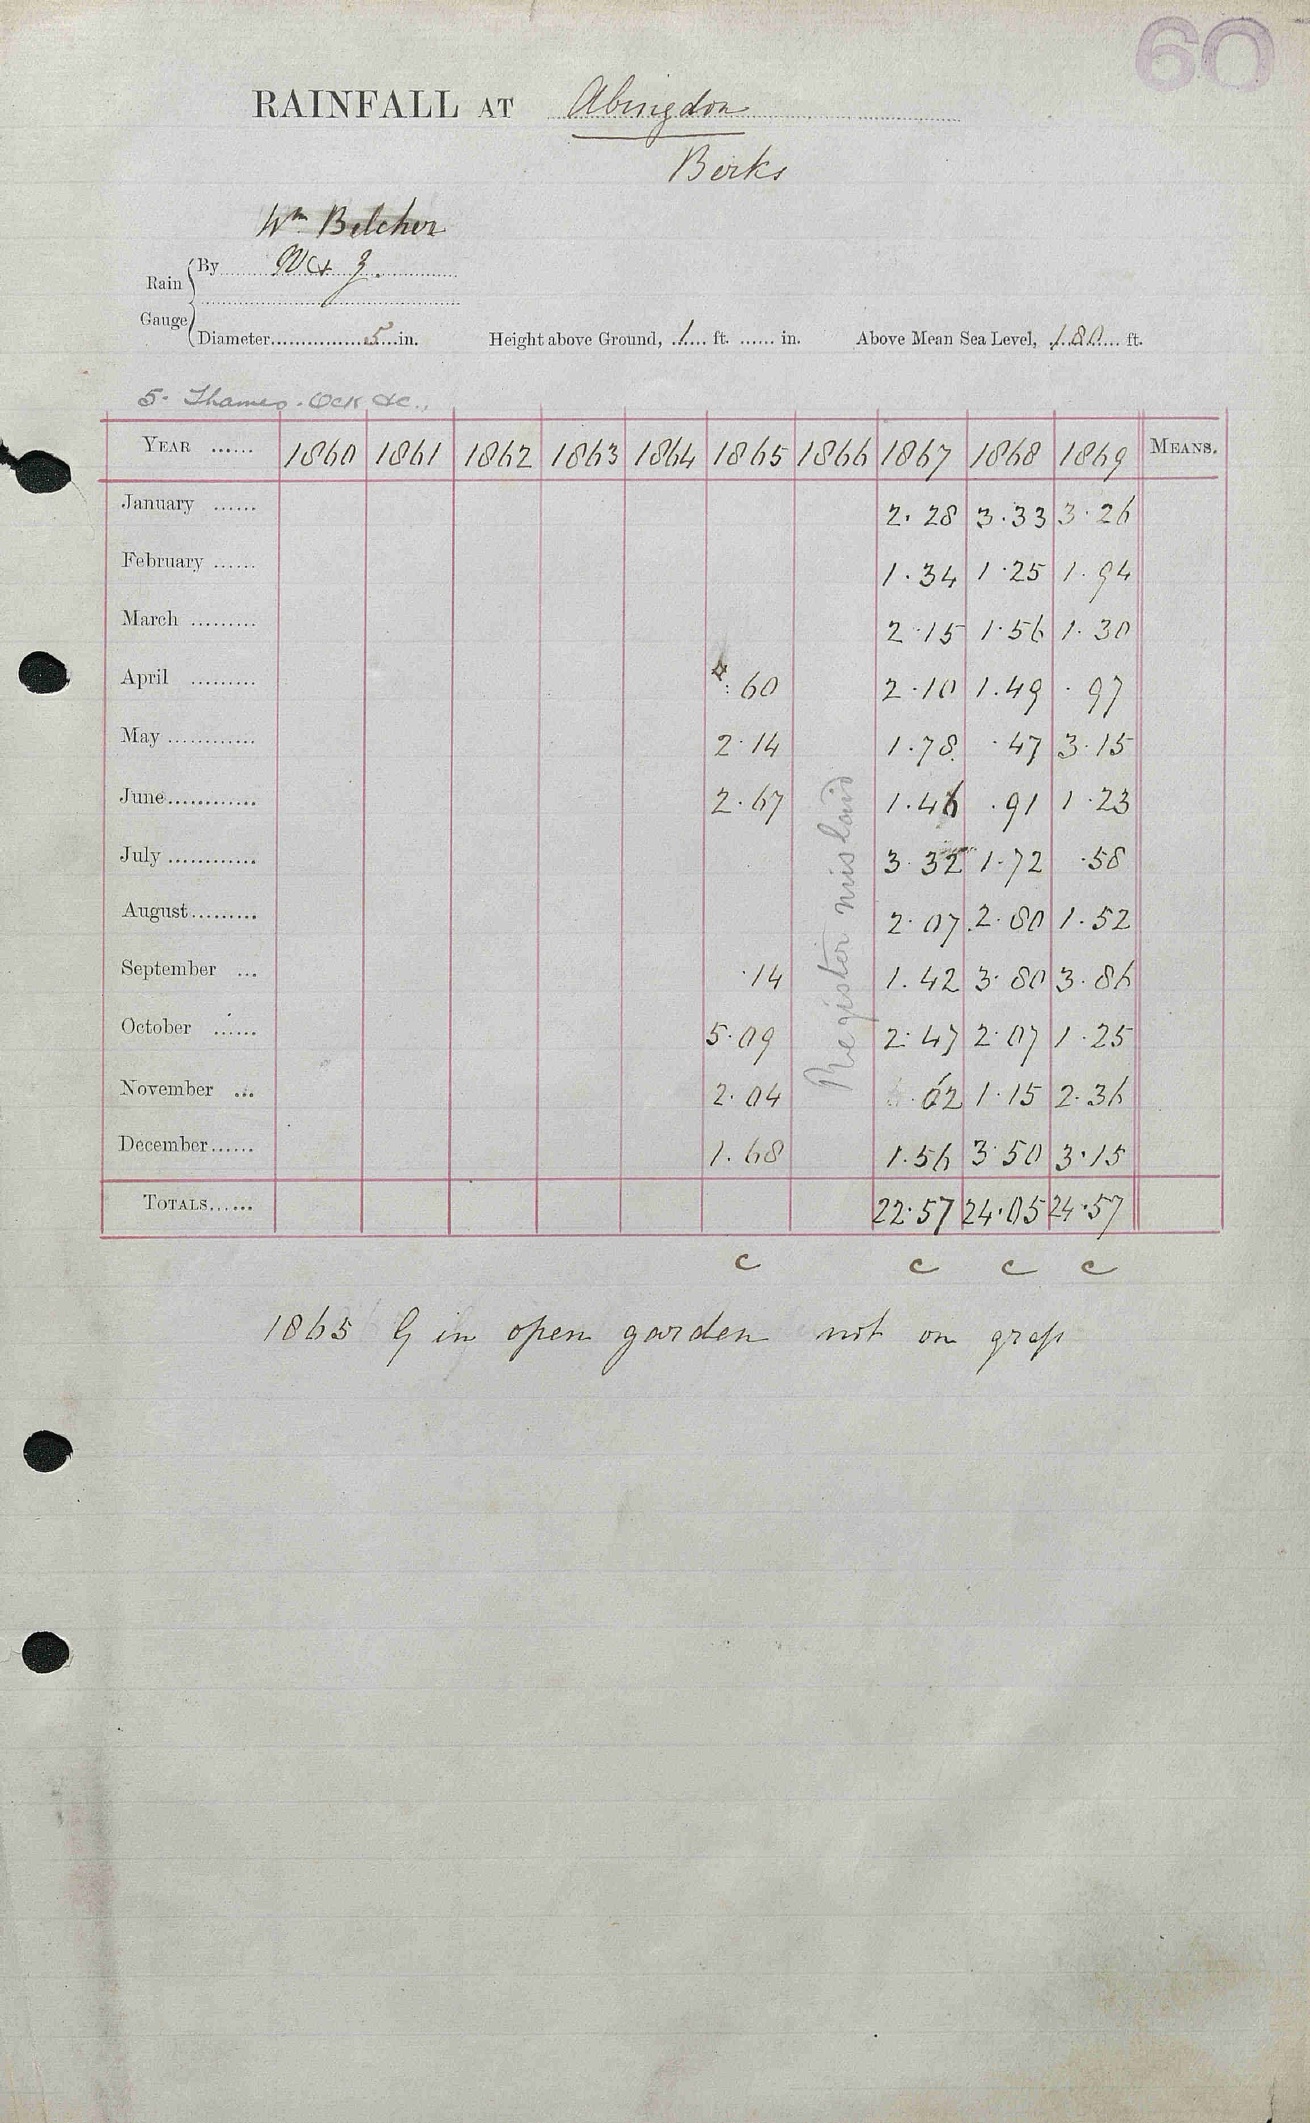 60
RAINFALL AT Abingdon
Berks
Wm Belcher
Rain Gauge
By N & Z.
Diameter 5 in. Height above Ground, 1 ft. in. Above Mean Sea Level, 180 ft.
5. Thames. Ock &c.,
YEAR 1860 1861 1862 1863 1864 1865 1866 1867 1868 1869 MEANS.
January 2.28 3.33 3.26
February 1.34 1.25 1.94
March 2.15 1.56 1.30
April .60 2.10 1.49 .97
May 2.14 1.78 .47 3.15
June 2.67 1.46 .91 1.23
July 3.32 1.72 .58
August 2.07 2.80 1.52
September .14 1.42 3.80 3.86
October 5.09 2.47 2.07 1.25
November 2.04 .62 1.15 2.36
December 1.68 1.56 3.50 3.15
Register mislaid
TOTALS 22.57 24.05 24.57
c c c c
1865 G in open garden not on grass